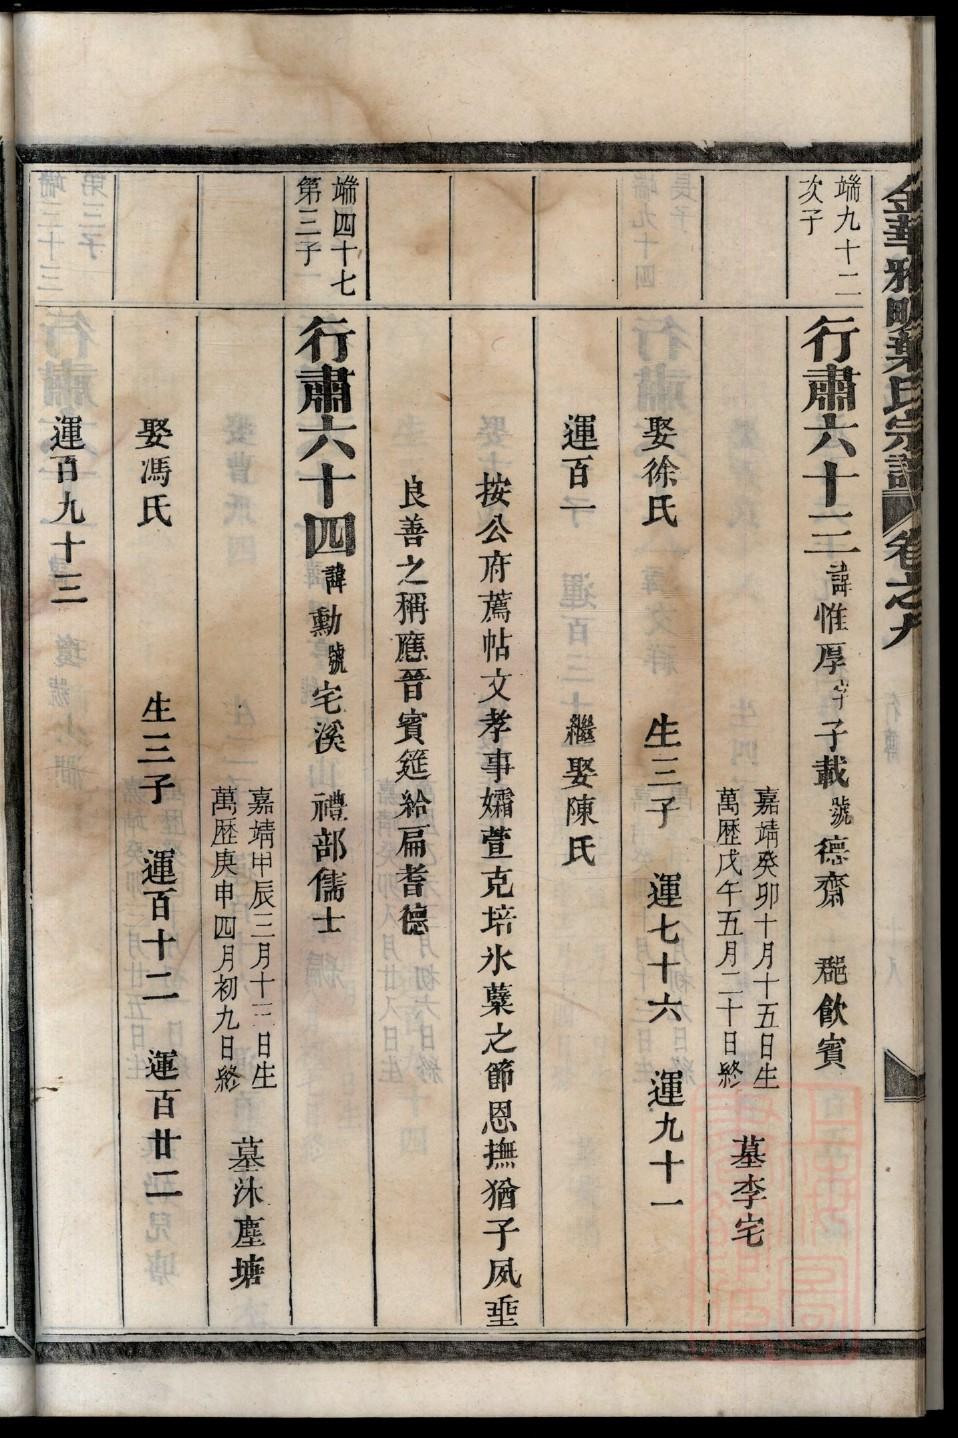 金華雅畈葉氏宗譜 卷之九
端九十二
次子
行肅六十三 諱惟厚 字子載 號德齋 郡飲賓
嘉靖癸卯十月十五日生
萬歷戊午五月二十日終
墓李宅
娶徐氏 生三子 運七十六 運九十一
運百一 繼娶陳氏
按公府薦帖文孝事孀萱克培氷蘗之節恩撫猶子夙乖
良善之稱應晉賓筵給扁耆德
端四十七
第三子
行肅六十四 諱勳 號宅溪 禮部儒士
嘉靖甲辰三月十三日生
萬歷庚申四月初九日終
墓沐塵塘
娶馮氏 生三子 運百十二 運百廿二
運百九十三